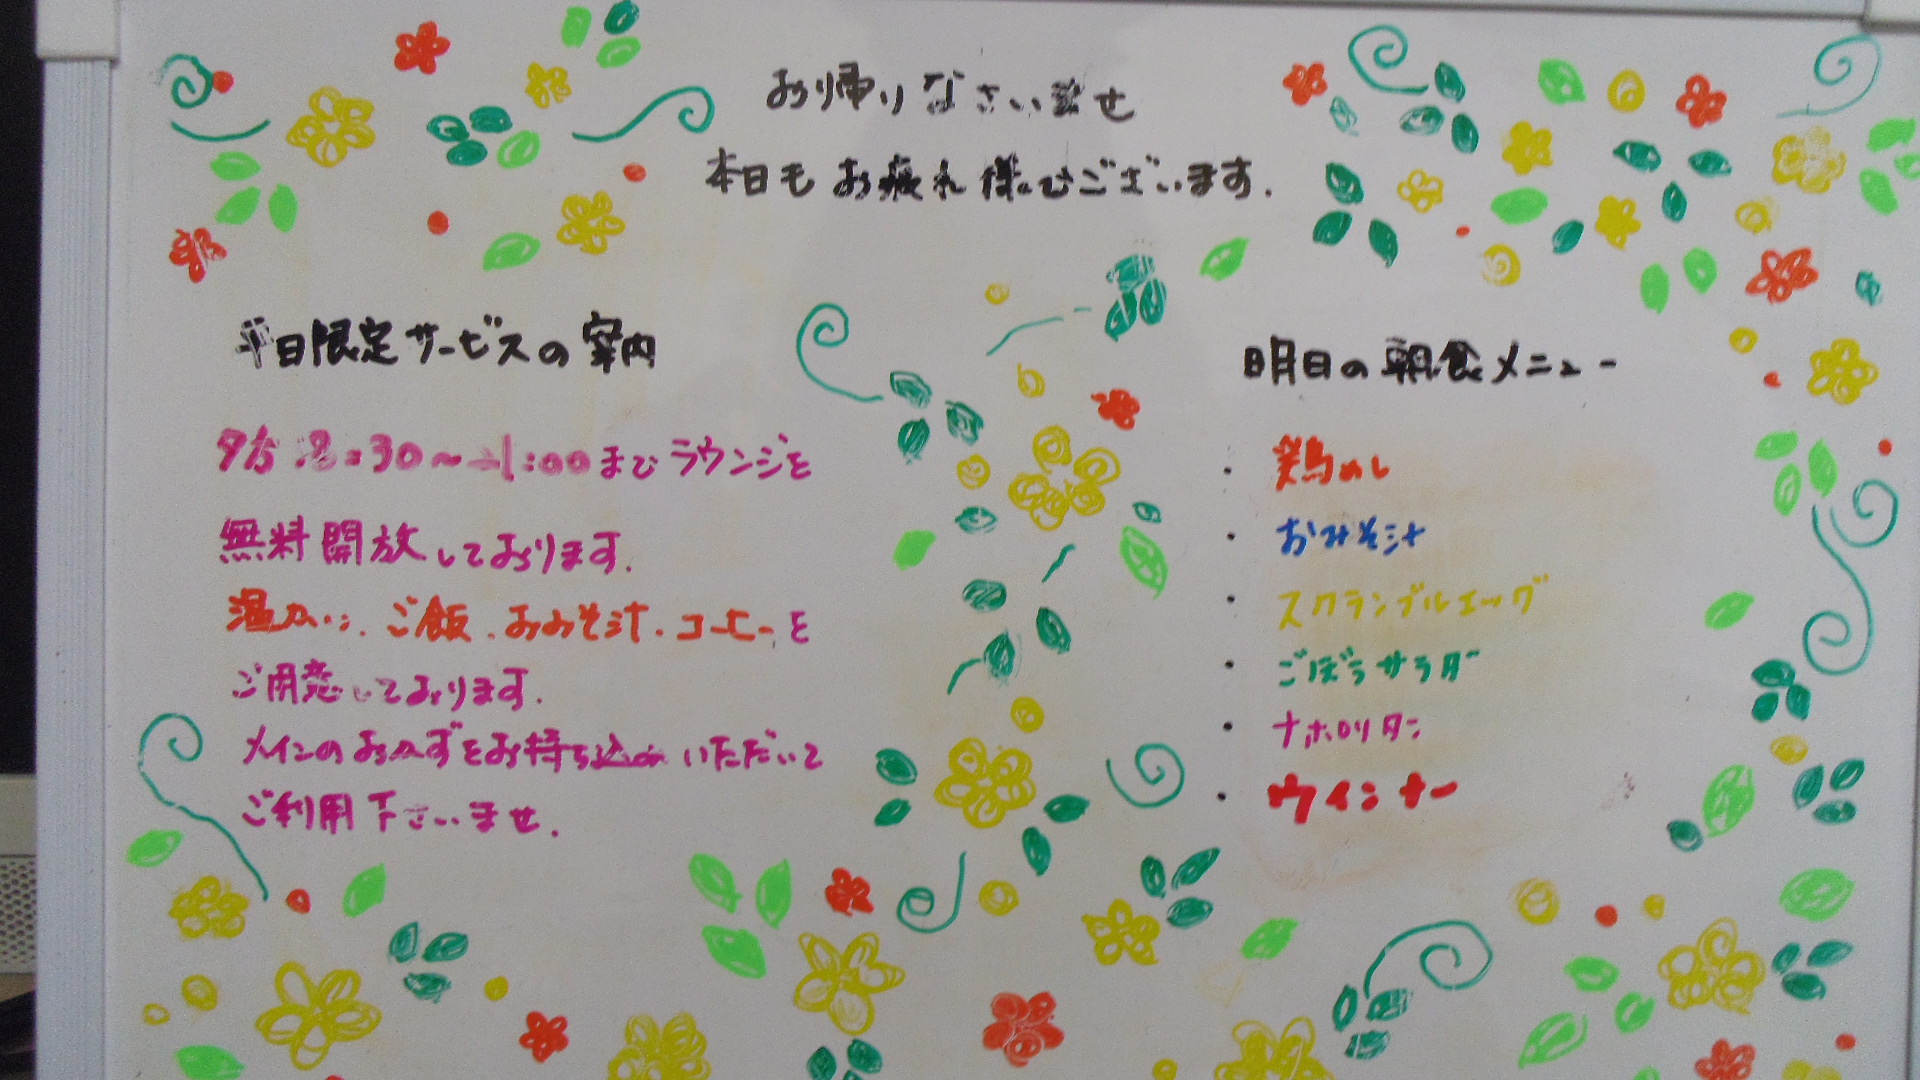 お帰りなさいませ
本日もお疲れ様でございます.
平日限定サービスの案内
夕方 :30〜 :00までラウンジを
無料開放しております.
温かい、ご飯、おみそ汁、コーヒーを
ご用意しております.
メインのおかずをお持ち込みいただいて
ご利用下さいませ.
明日の朝食メニュー
・鶏めし
・おみそ汁
・スクランブルエッグ
・ごぼうサラダ
・ナポリタン
・ウインナー